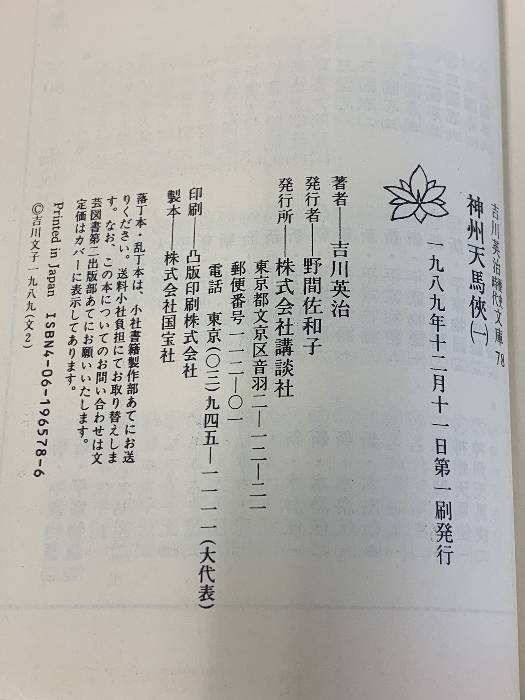 吉川英治歴史時代文庫 78
神州天馬俠㈠
一九八九年十二月十一日第一刷発行
著者——吉川英治
発行者——野間佐和子
発行所——株式会社講談社
東京都文京区音羽二—一二—二一
郵便番号一一二—〇一
電話 東京(〇三)九四五—一一一一(大代表)
印刷——凸版印刷株式会社
製本——株式会社国宝社
落丁本・乱丁本は、小社書籍製作部あてにお送
りください。送料小社負担にてお取り替えしま
す。なお、この本についてのお問い合わせは文
芸図書第二出版部あてにお願いいたします。
定価はカバーに表示してあります。
Printed in Japan ISBN4-06-196578-6
©吉川文子一九八九(文2)